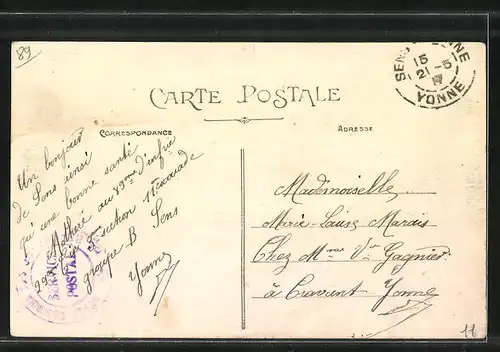 89
SENS YONNE
15
21-5
YONNE
CARTE POSTALE
CORRESPONDANCE
ADRESSE
Un bonjour
de Sens ainsi
qu'une bonne santé
au 89me d'infie
section 11e escouade
groupe B Sens
Yonne
SERVICE
POSTAL
Mademoiselle
Marie-Louise Marais
Chez Mme Vve Gagnier
à Cravant Yonne
11